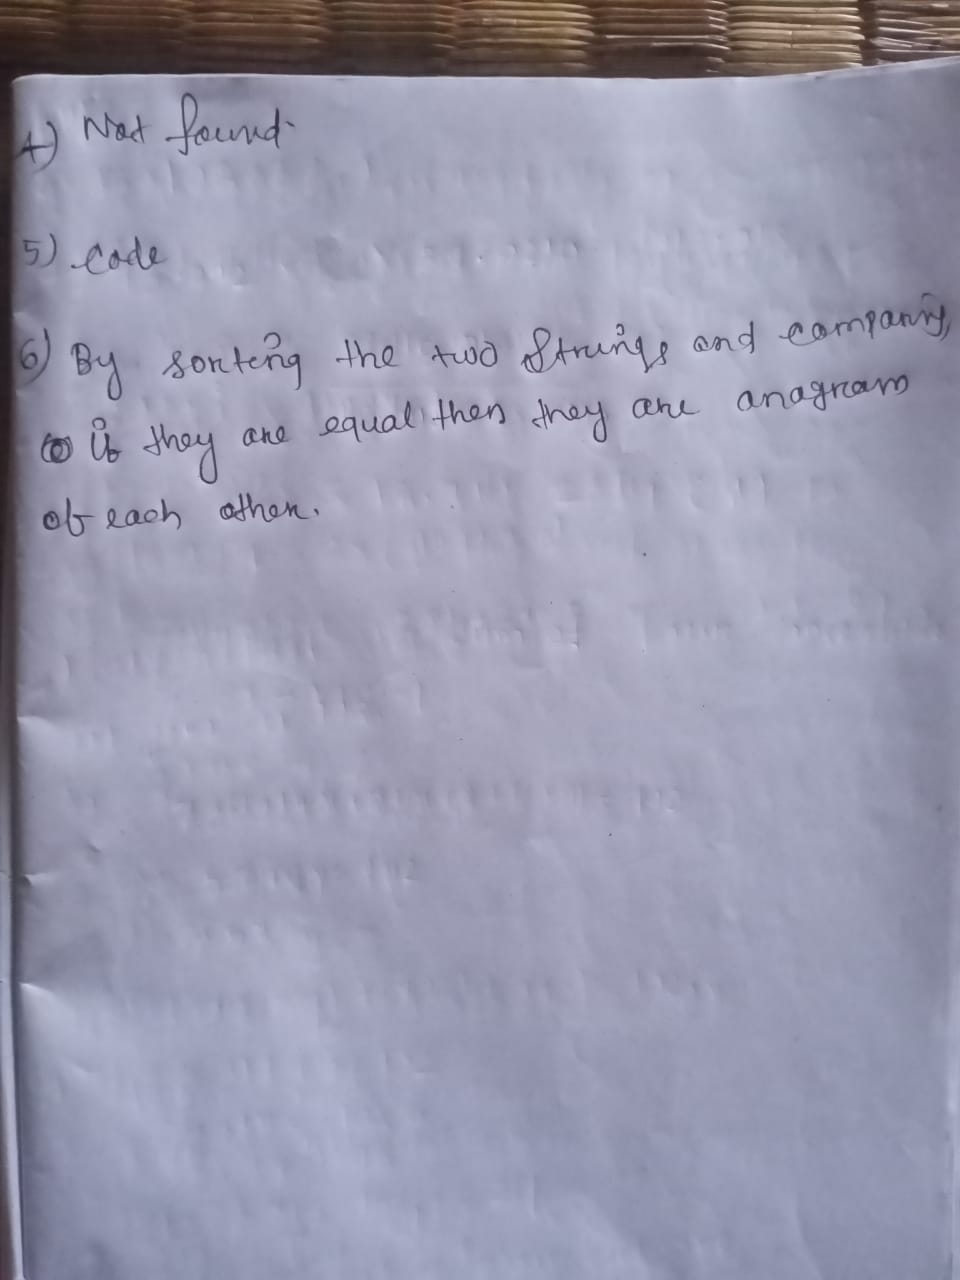 4) Not found.
5) Code
6) By sorting the two strings and comparing,
if they are equal then they are anagram
of each other.